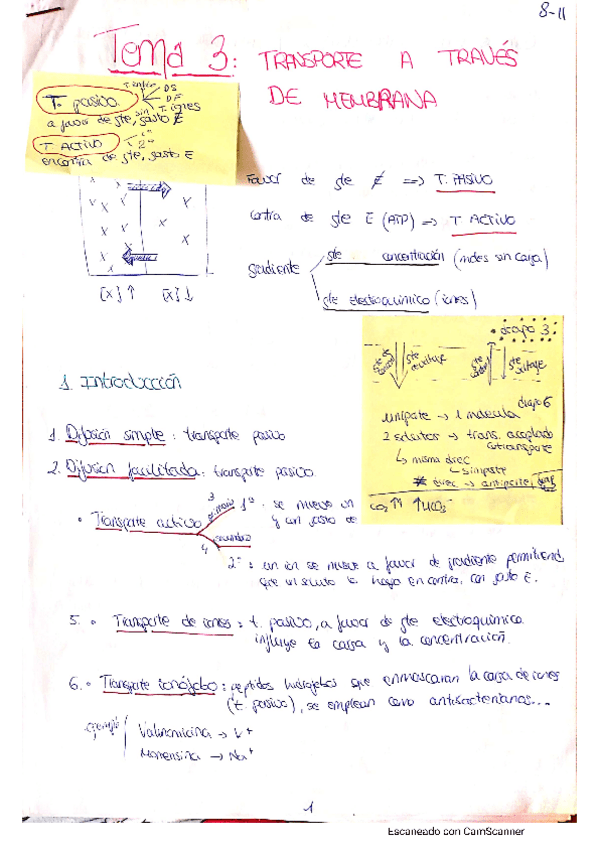 8-11
Tema 3: TRANSPORTE A TRAVÉS
DE MEMBRANA
T. pasivo
DS
DF
T. iones
a favor de gte, sin gasto E
T. ACTIVO
1º
2º
en contra de gte, gasto E
Favor de gte E => T. PASIVO
Contra de gte E (ATP) => T ACTIVO
gradiente
gte concentración (moles sin carga)
gte electroquímico (iones)
[X] ↑ [X] ↓
diapo 3
gte voltaje
diapo 6
uniporte → 1 molécula
2 solutos → trans. acoplado
cotransporte
↳ misma direc
simporte
direc → antiporte
CO₂ ↑↑ ↑HCO₃⁻
1. Introducción
1. Difusión simple: transporte pasivo
2. Difusión facilitada: transporte pasivo
3
primario
1º se mueve un
Transporte activo
y un gasto de
4
secundario
2º: un ion se mueve a favor de gradiente
que el soluto lo haga en contra, con gasto E.
5. Transporte de iones: t. pasivo, a favor de gte electroquímico
influye la carga y la concentración.
6. Transporte ionóforo: péptidos hidrofobos que enmascaran la carga de iones
(t. pasivo), se emplean como antibacterianos...
ejemplo
Valinomicina → K+
Monensina → Na+
1
Escaneado con CamScanner